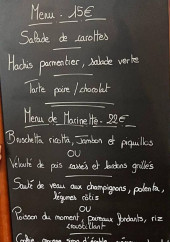 Menu - 15€
Salade de carottes
Hachis parmentier, salade verte
Tarte poire / chocolat
Menu de Marinette - 22€
Bruschetta ricotta, Jambon et piquillos
OU
Velouté de pois cassés et lardons grillés
Sauté de veau aux champignons, polenta,
légumes rôtis
OU
Poisson du moment, poireaux fondants, riz
croustillant